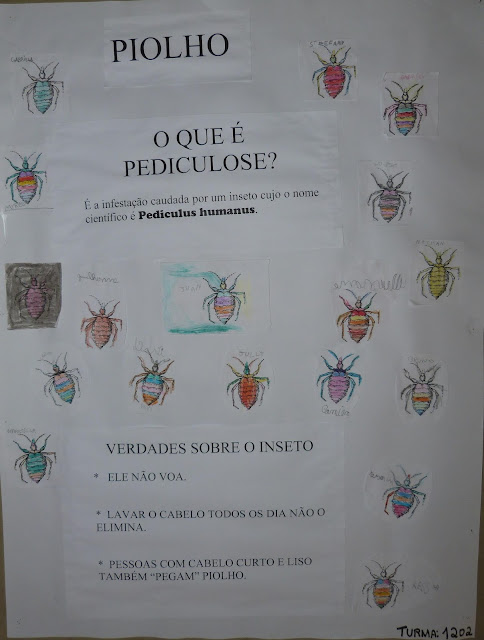 PIOLHO
O QUE É
PEDICULOSE?
É a infestação caudada por um inseto cujo o nome
científico é Pediculus humanus.
VERDADES SOBRE O INSETO
* ELE NÃO VOA.
* LAVAR O CABELO TODOS OS DIA NÃO O
ELIMINA.
* PESSOAS COM CABELO CURTO E LISO
TAMBÉM “PEGAM” PIOLHO.
TURMA: 1202